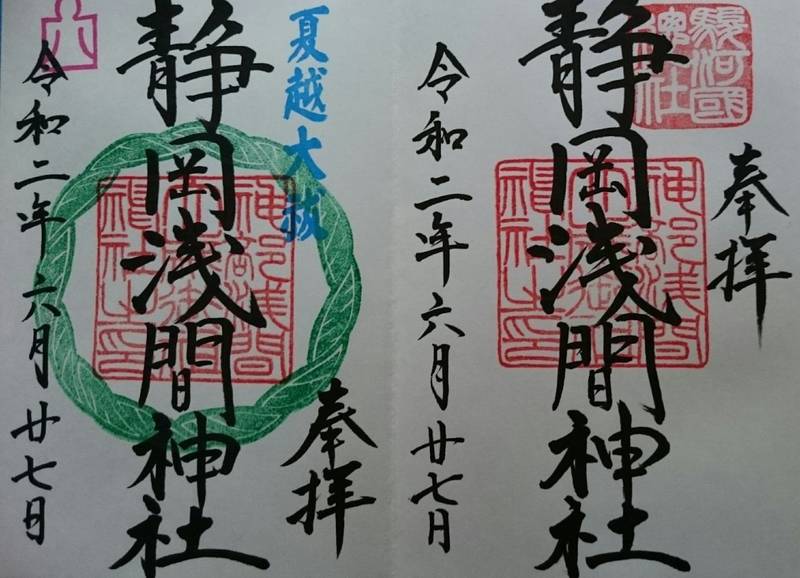 駿河國
奉拝
静岡浅間神社
令和二年六月廿七日
夏越大祓
奉拝
静岡浅間神社
令和二年六月廿七日
六